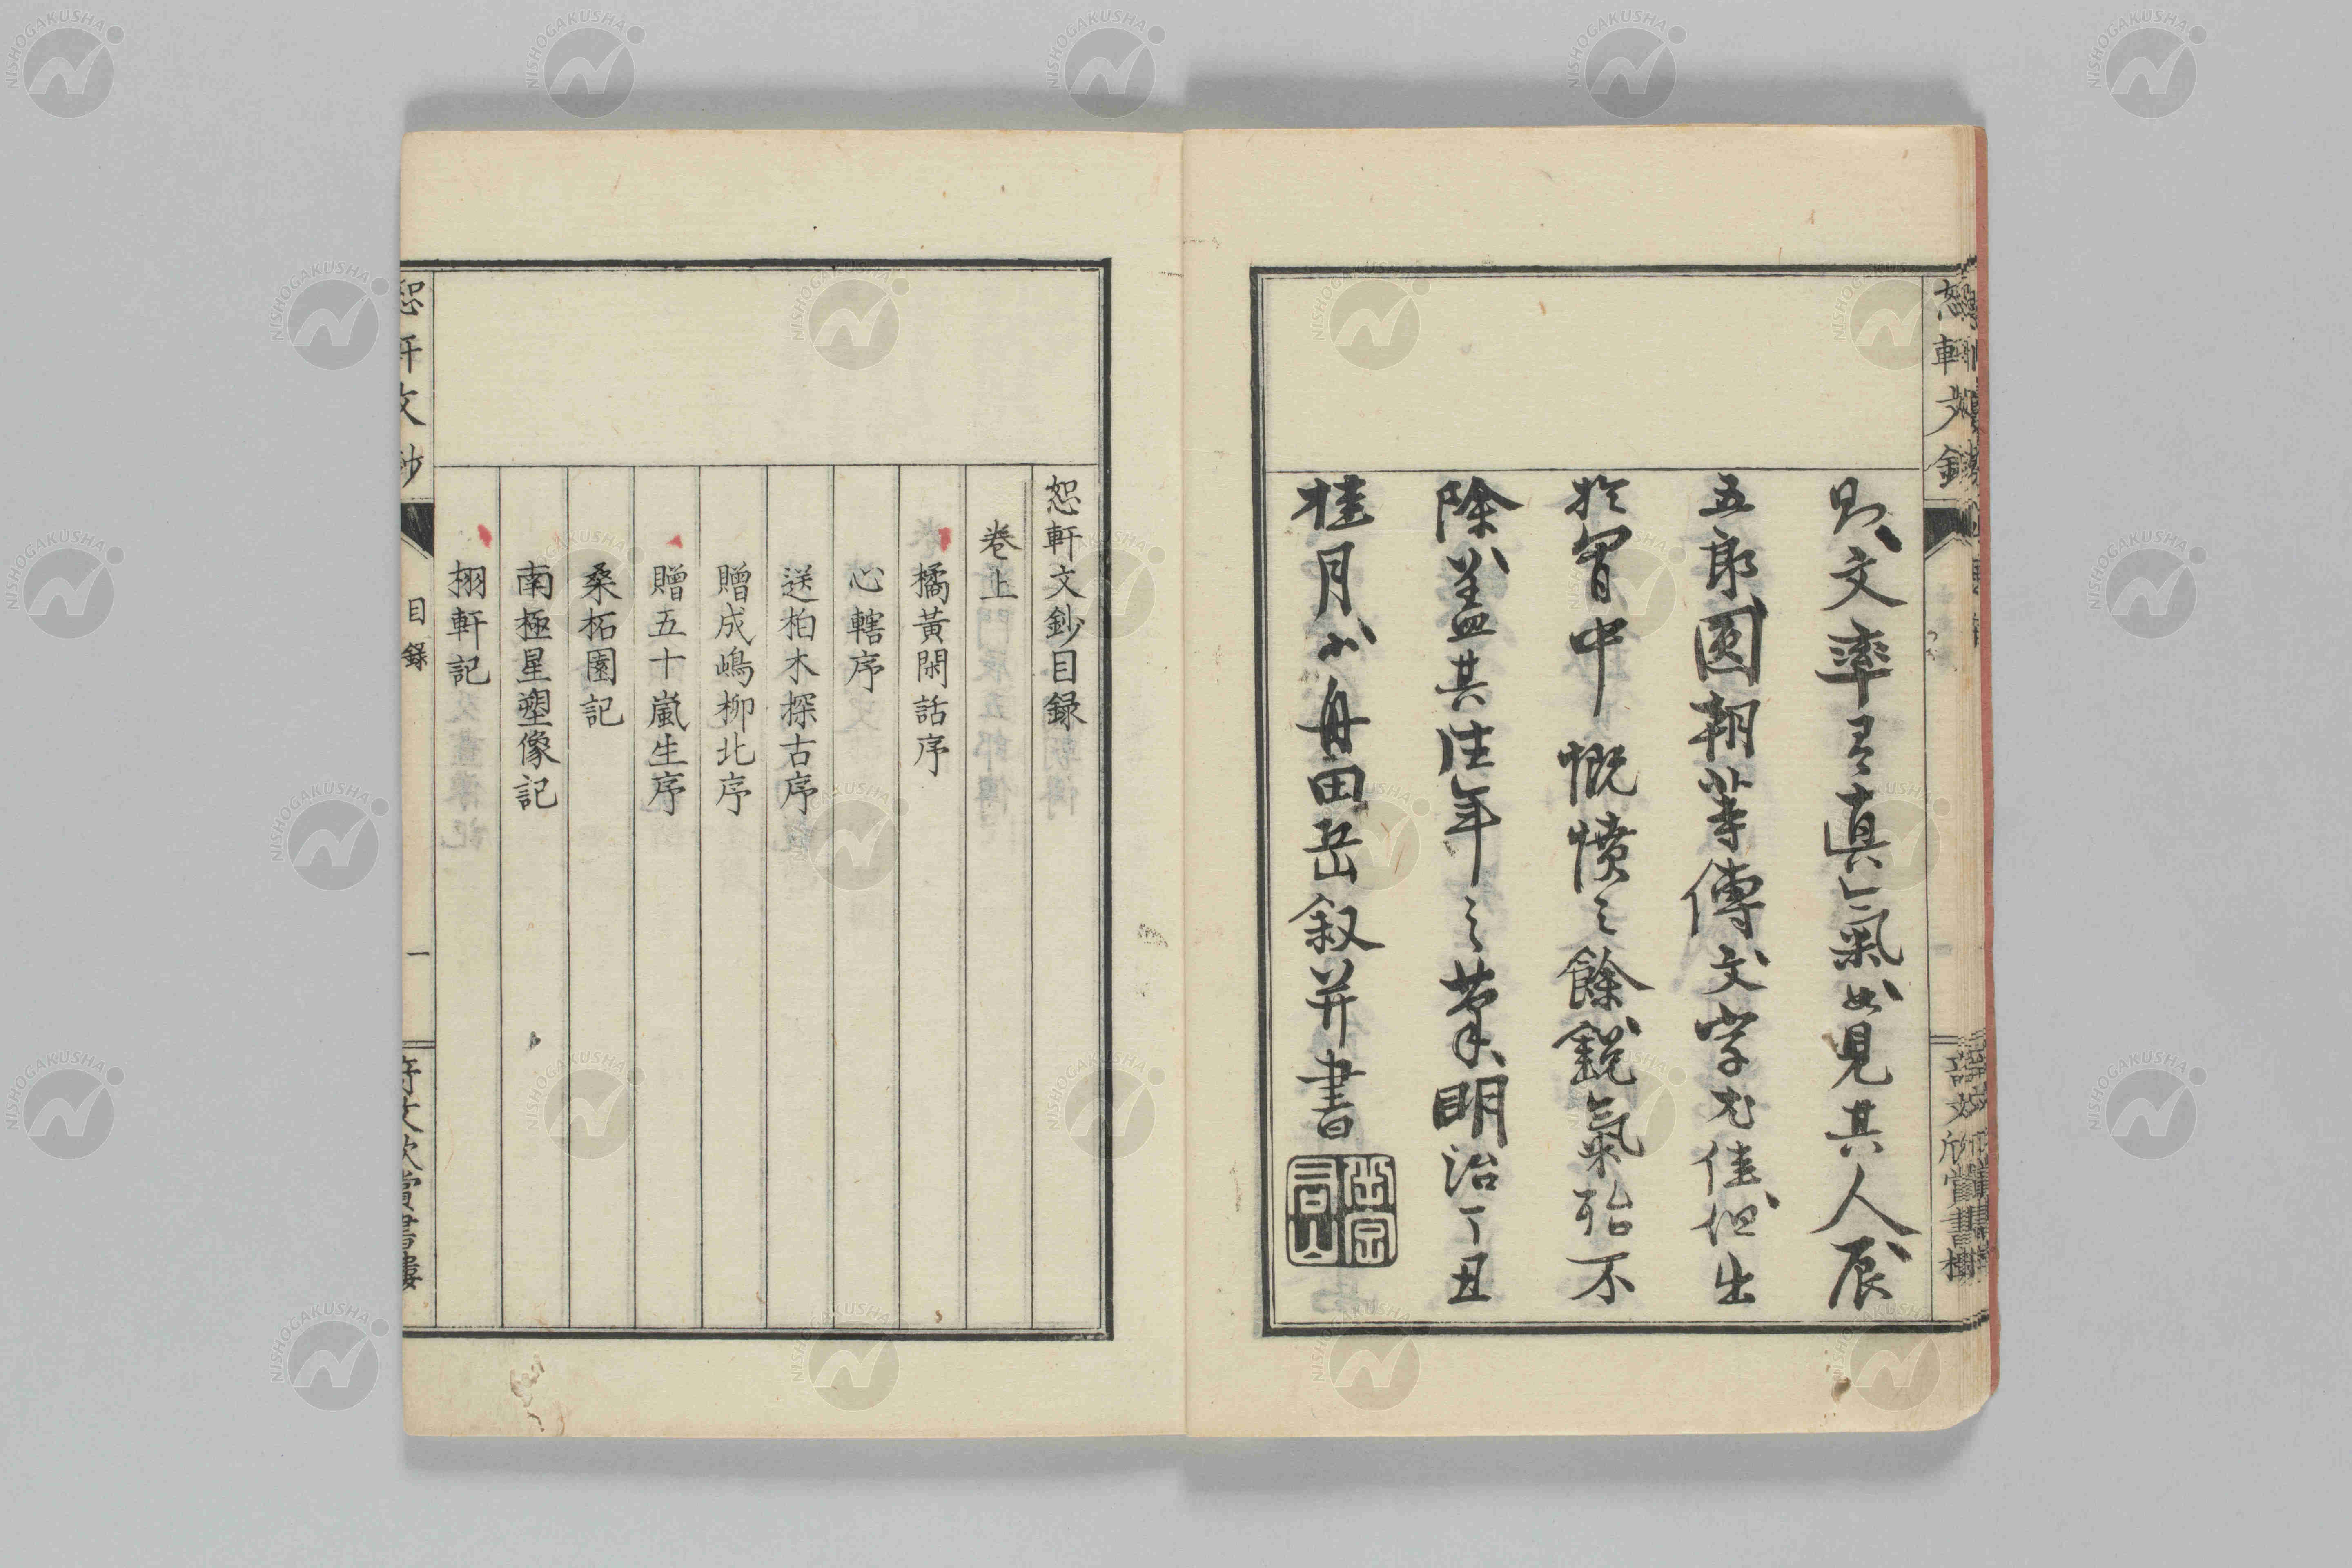 恕軒文鈔
則文率有真氣如見其人辰
五郎圓朝等傳文字尤佳但出
於胷中慨憤之餘鋭氣殆不
除蓋其往年之筆明治丁丑
桂月小舟田岳叙并書
恕軒文鈔目録
卷上
橘黃閑話序
心轄序
送柏木探古序
贈成嶋柳北序
贈五十嵐生序
桑柘園記
南極星塑像記
栩軒記
恕軒文鈔
目録
一
奇文欣賞書樓
NISHOGAKUSHA